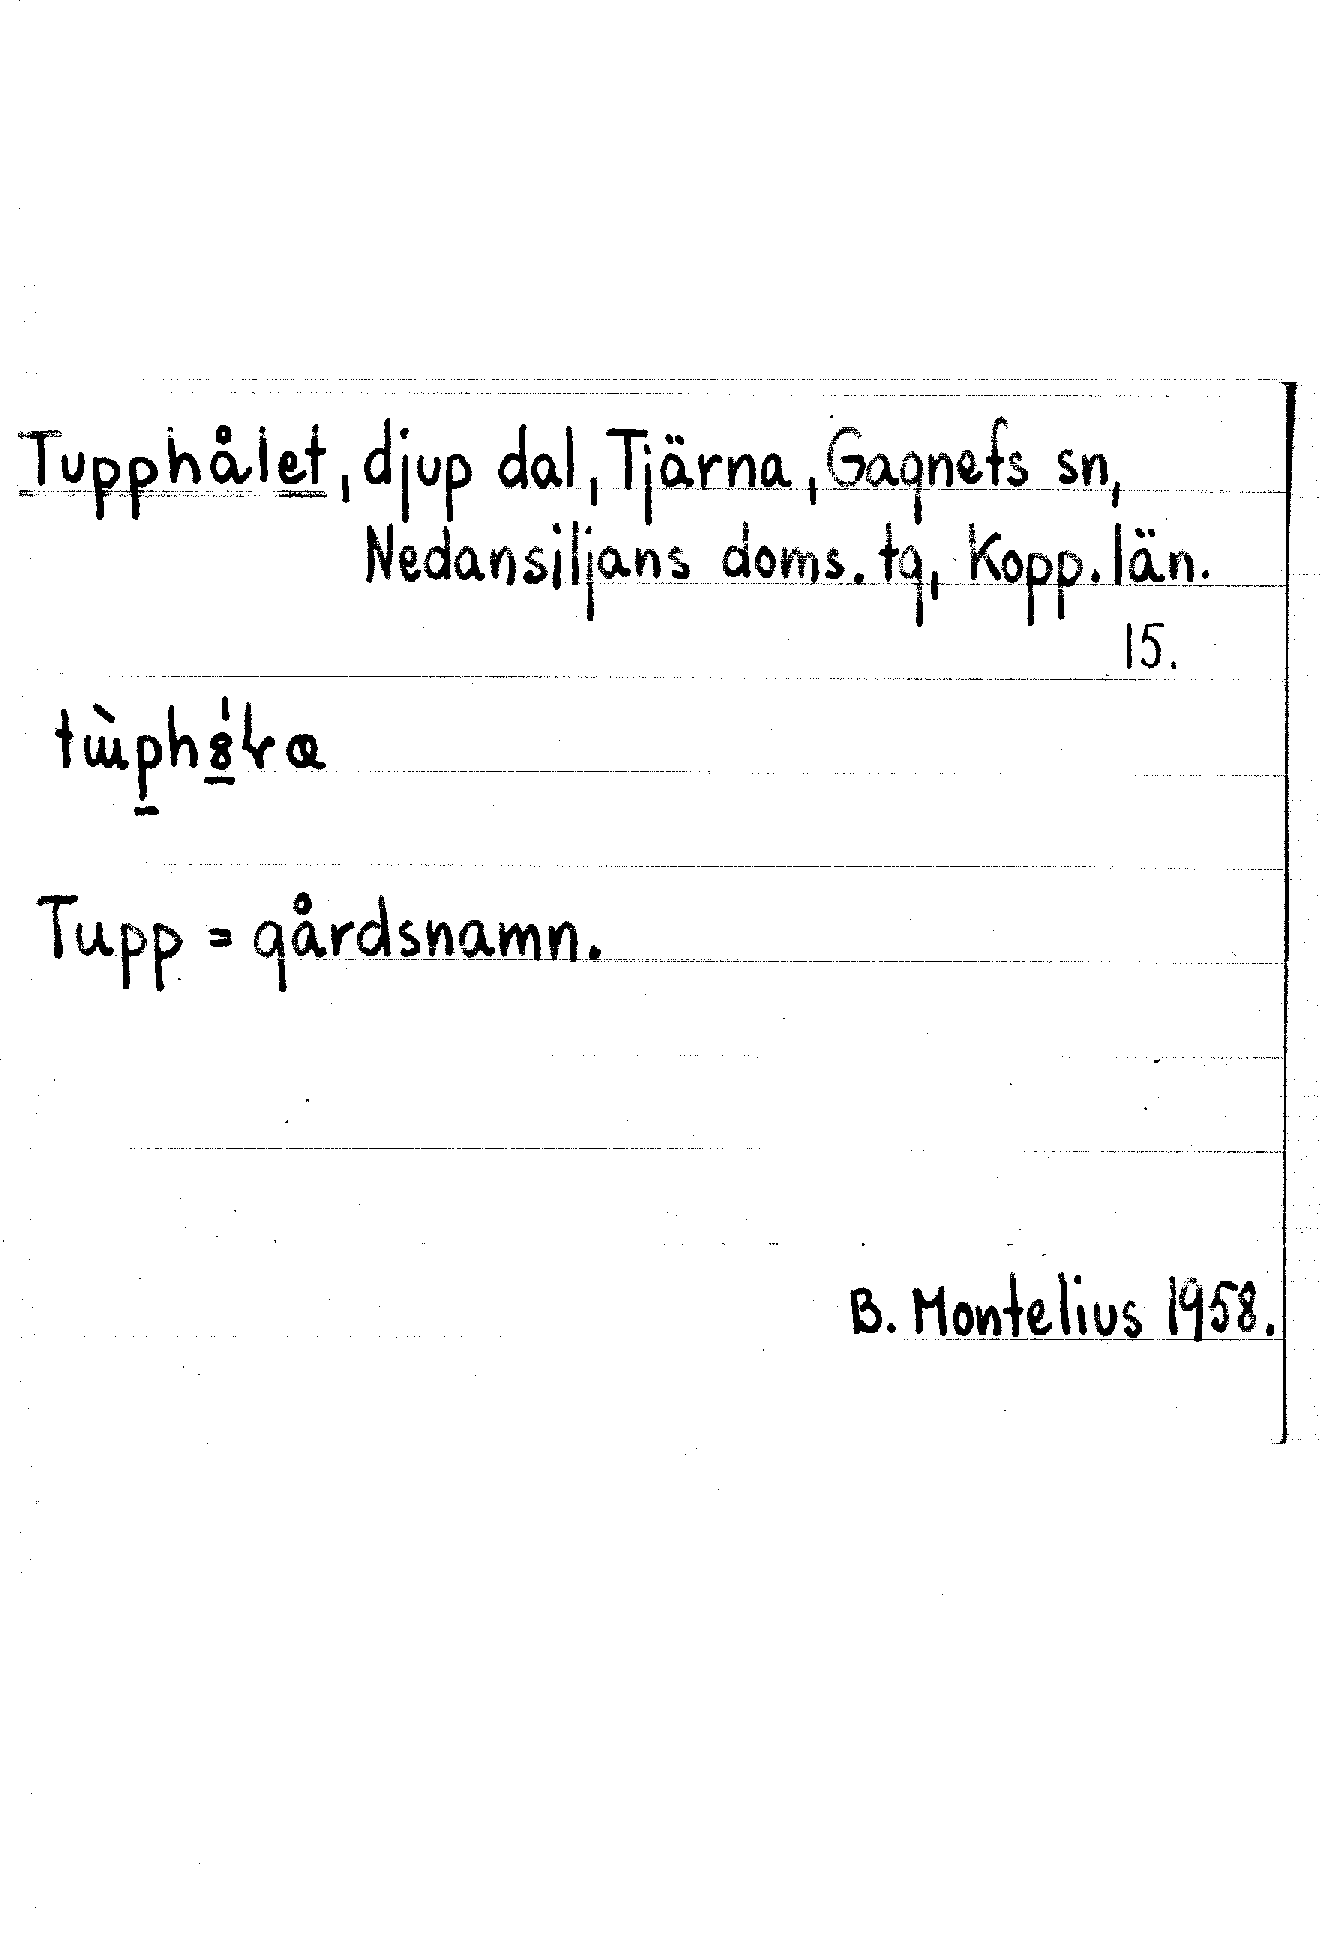 Tupphålet, djup dal, Tjärna, Gagnefs sn,
Nedansiljans doms. tg, Kopp. län.
15.
Tupp = gårdsnamn.
B. Montelius 1958.